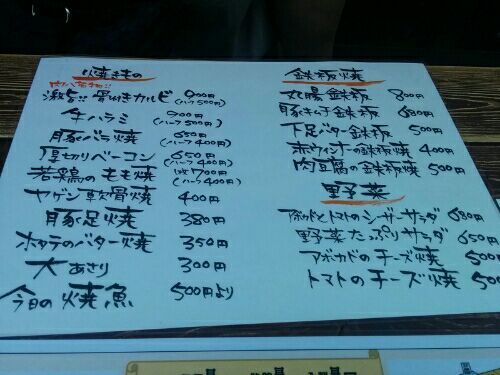 焼きもの
激旨!!骨付きカルビ 900円
(ハーフ500円)
牛ハラミ 900円
(ハーフ500円)
豚バラ焼 650円
(ハーフ400円)
厚切りベーコン 650円
(ハーフ400円)
若鶏のもも焼 700円
400円
ヤゲン軟骨焼 400円
豚足焼 380円
ホタテのバター焼 350円
大あさり 300円
今日の焼魚 500円より
鉄板焼
丸腸鉄板 800円
豚キムチ鉄板 680円
下足バター鉄板 500円
赤ウィンナーの鉄板焼 400円
肉豆腐の鉄板焼 500
野菜
アボカドとトマトのシーザーサラダ 680円
野菜たっぷりサラダ 650円
アボカドのチーズ焼 500
トマトのチーズ焼 500